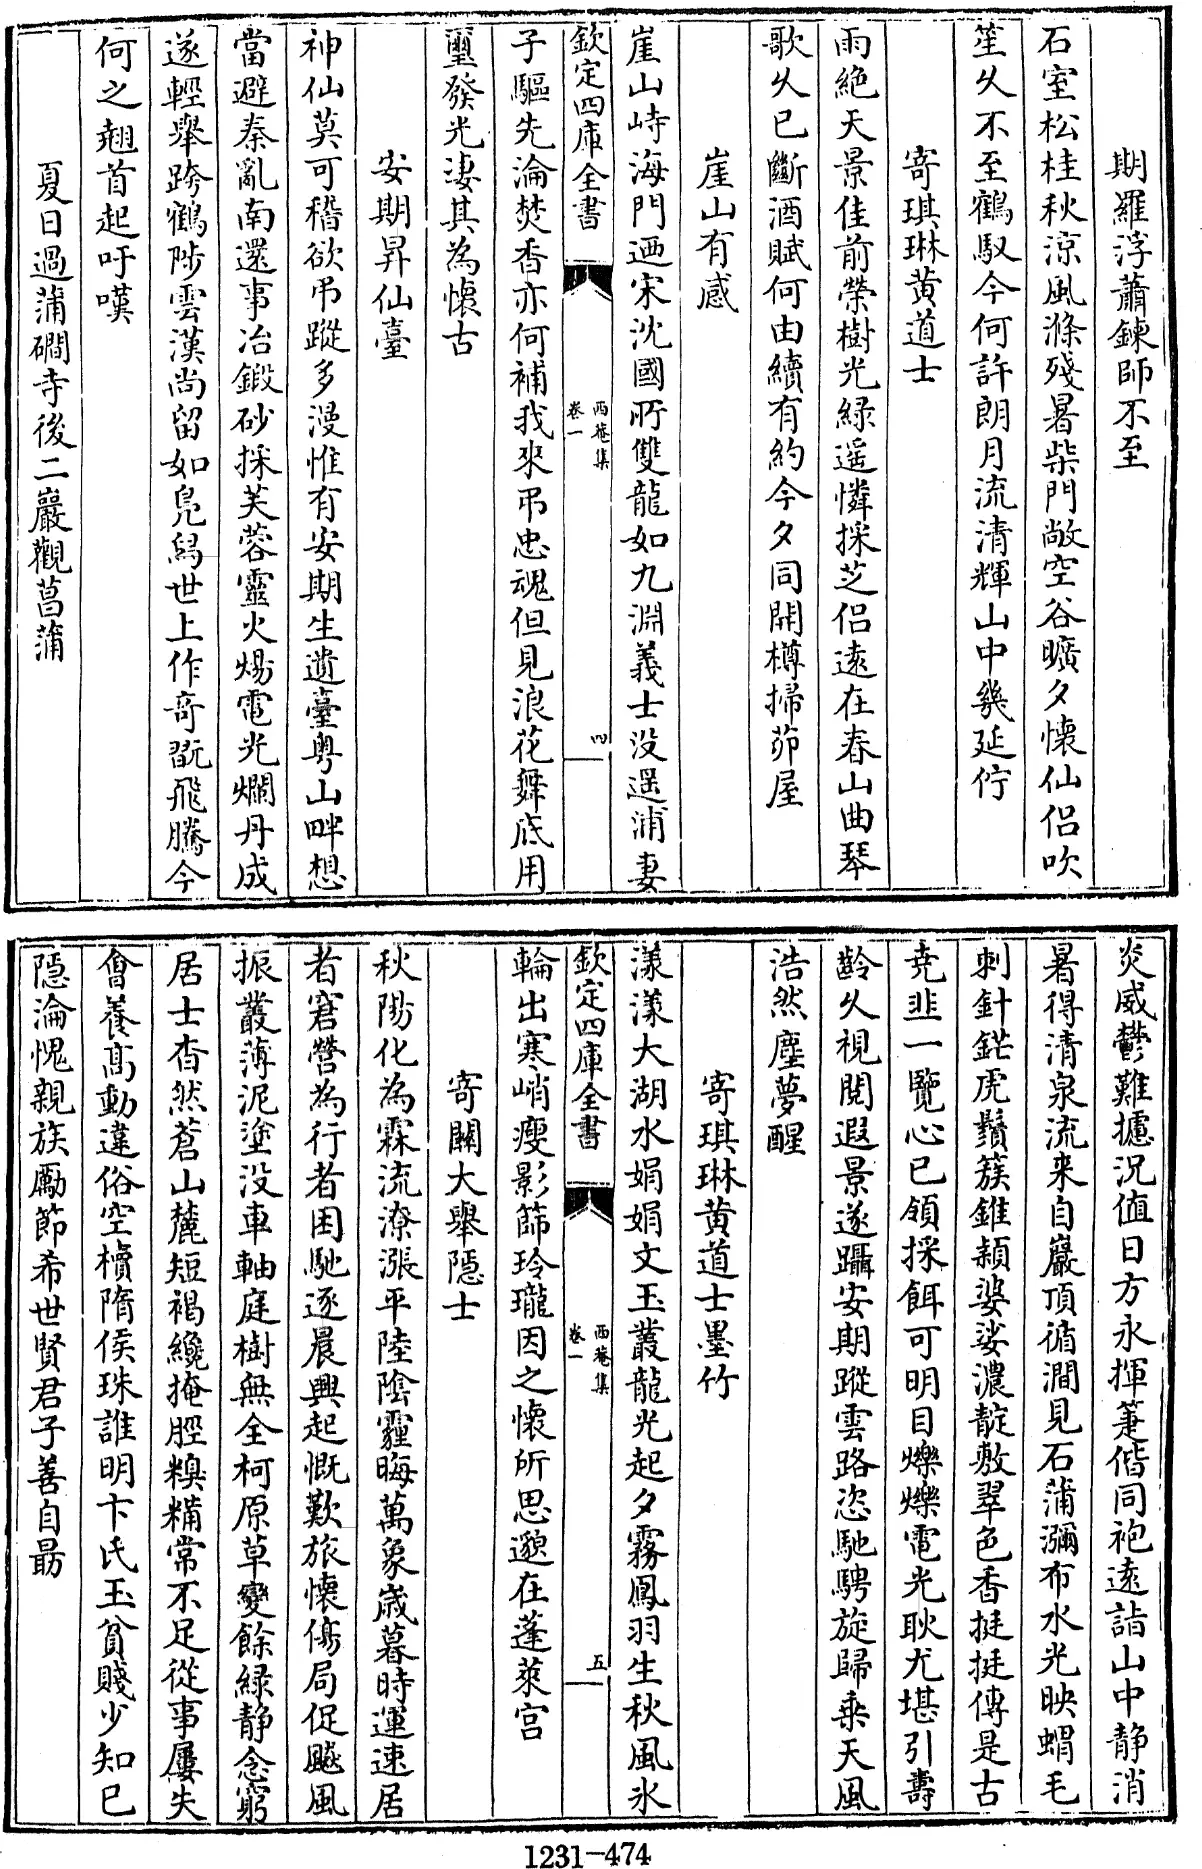 期羅浮蕭鍊師不至
石室松桂秋涼風滌殘暑柴門敞空谷曠夕懷仙侶吹
笙久不至鶴馭今何許朗月流清輝山中幾延佇
寄琪琳黄道士
雨絶天景佳前榮樹光緑遥憐採芝侣遠在春山曲琴
歌久已斷酒賦何由續有約今夕同開樽掃茆屋
崖山有感
崖山峙海門迺宋沈國所雙龍如九淵義士没遥浦妻
欽定四庫全書
西菴集
卷一
四
子驅先淪焚香亦何補我來弔忠魂但見浪花舞底用
璽發光淒其為懷古
安期昇仙臺
神仙莫可稽欲弔蹤多漫惟有安期生遺臺粤山畔想
當避秦亂南還事冶鍛砂採芙蓉靈火煬電光爛丹成
遂輕舉跨鶴陟雲漢尚留如鳧舄世上作奇翫飛騰今
何之翹首起吁嘆
夏日過蒲磵寺後二巖觀菖蒲
炎威鬱難攄況值日方永揮箑偕同袍遠詣山中静消
暑得清泉流来自巖頂循澗見石蒲瀰布水光映蝟毛
刺針鋩虎鬚簇錐穎婆娑濃靛敷翠色香挺挺傳是古
尭韭一覽心已領採餌可明目爍爍電光耿尤堪引壽
齡久視閲遐景遂躡安期蹤雲路恣馳騁旋歸乗天風
浩然塵夢醒
寄琪琳黄道士墨竹
漾漾大湖水娟娟文玉叢龍光起夕霧鳳羽生秋風氷
欽定四庫全書
西菴集
卷一
五
輪出寒峭瘦影篩玲瓏因之懷所思邈在蓬萊宫
寄關大舉隱士
秋陽化為霖流潦漲平陸陰霾晦萬象歳暮時運速居
者窘營為行者困馳逐晨興起慨歎旅懷傷局促飈風
振叢薄泥塗没車軸庭樹無全柯原草變餘緑静念窮
居士杳然蒼山麓短褐纔掩脛糗糒常不足從事屢失
會養高動違俗空櫝隋侯珠誰明卞氏玉貧賤少知已
隠淪愧親族勵節希世賢君子善自勗
1231-474